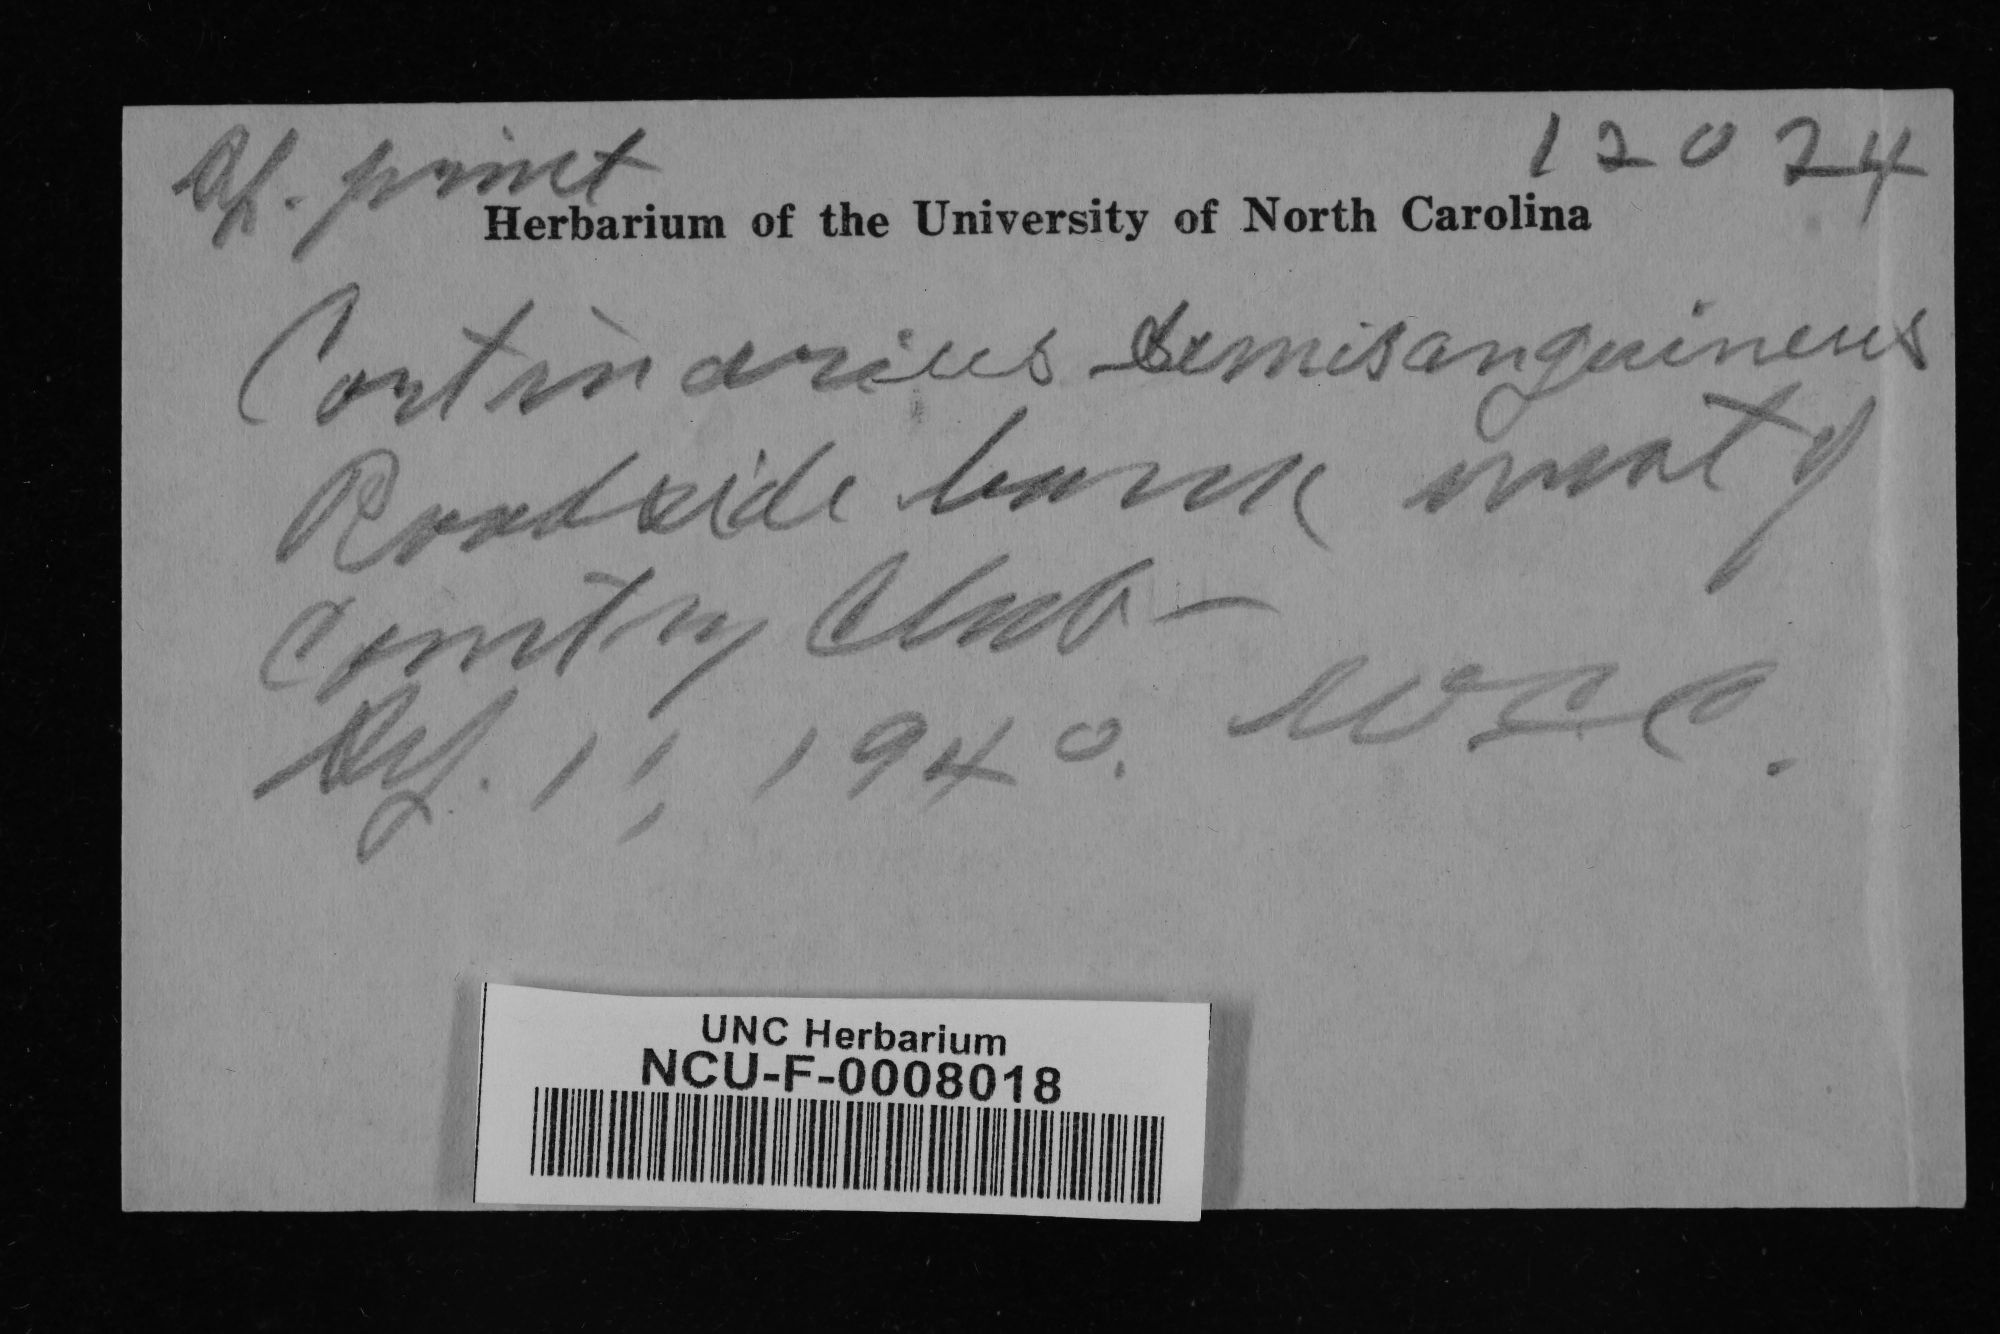 Sp. print
12024
Herbarium of the University of North Carolina
Cortinarius semisanguineus
Roadside bank west of
Country Club –
11, 1940. W C C.
UNC Herbarium
NCU-F-0008018